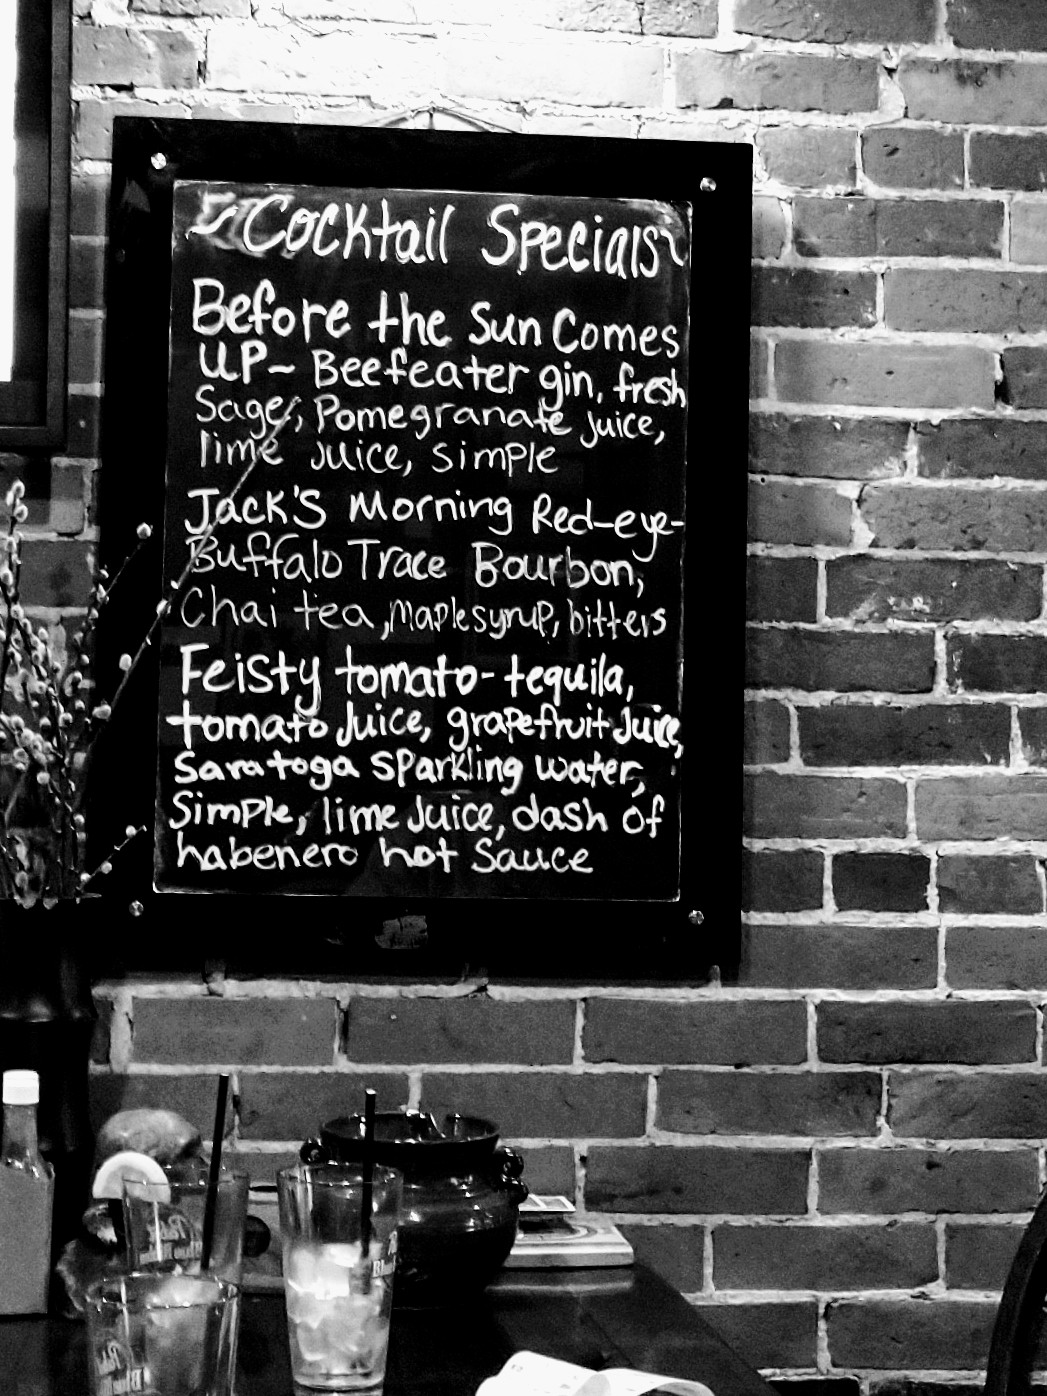 Cocktail Specials
Before the Sun Comes
UP- Beefeater gin, fresh
Sage, Pomegranate juice,
lime juice, simple
Jack's Morning Red-eye-
Buffalo Trace Bourbon,
Chai tea, maple syrup, bitters
Feisty tomato- tequila,
tomato juice, grapefruit juice,
Saratoga sparkling water,
Simple, lime juice, dash of
habenero hot Sauce